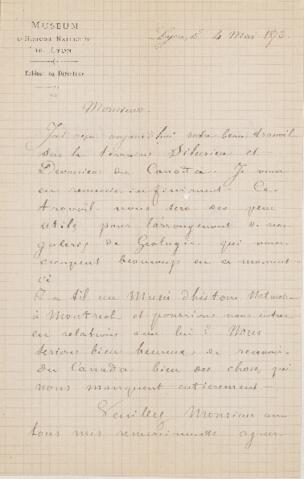 MUSEUM
D'HISTOIRE NATURELLE
DE LYON
Cabinet du Directeur
Lyon, le 4 Mai 1873
Monsieur
J'ai reçu aujourd'hui votre beau travail
sur le terrain Silurien et
Devonien du Canada. Je vous
en remercie infiniment. Ce
travail nous sera des plus
utile pour l'arrangement de nos
galeries de Geologie qui nous
occupent beaucoup en ce moment-
ci
Y a til un Musée d'histoire Naturelle
à Montreal et pourrions nous entrer
en relations avec lui? Nous
serions bien heureux de recevoir
du Canada bien des choses qui
nous manquent entierement—
Veuillez Monsieur avec
tous mes remerciments agréer